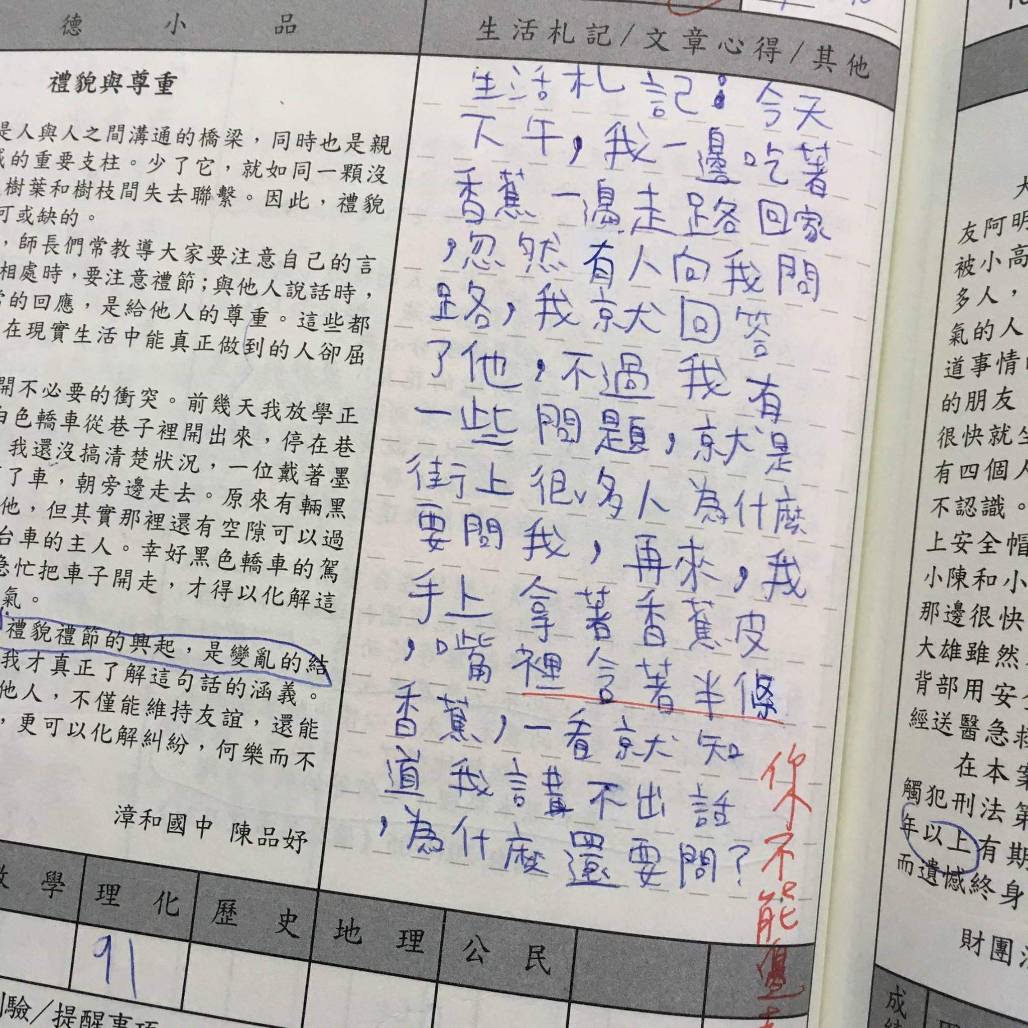 德 小 品
生活札記/文章心得/其他
禮貌與尊重
是人與人之間溝通的橋梁，同時也是親
的重要支柱。少了它，就如同一顆沒
樹葉和樹枝間失去聯繫。因此，禮貌
可或缺的。
，師長們常教導大家要注意自己的言
相處時，要注意禮節；與他人說話時，
的回應，是給他人的尊重。這些都
在現實生活中能真正做到的人卻屈
開不必要的衝突。前幾天我放學正
白色轎車從巷子裡開出來，停在巷
我還沒搞清楚狀況，一位戴著墨
了車，朝旁邊走去。原來有輛黑
他，但其實那裡還有空隙可以過
台車的主人。幸好黑色轎車的駕
急忙把車子開走，才得以化解這
氣。
禮貌禮節的興起，是變亂的結
我才真正了解這句話的涵義。
他人，不僅能維持友誼，還能
，更可以化解糾紛，何樂而不
漳和國中 陳品妤
生活札記：今天
下午，我一邊吃著
香蕉一邊走路回家
，忽然有人向我問
路，我就回答
了他，不過我有
一些問題，就是
街上很多人為什麼
要問我，再來，我
手上拿著香蕉皮
，嘴裡含著半條
香蕉，一看就知
道我講不出話
，為什麼還要問？
你不能邊走
學 理化 歷史 地理 公民
91
驗/提醒事項
友阿明
被小高
多人，
氣的人
道事情
的朋友
很快就
有四個人
不認識。
上安全帽
小陳和小
那邊很快
大雄雖然
背部用安
經送醫急救
在本案
觸犯刑法第
年以上有期
而遺憾終身
財團
成